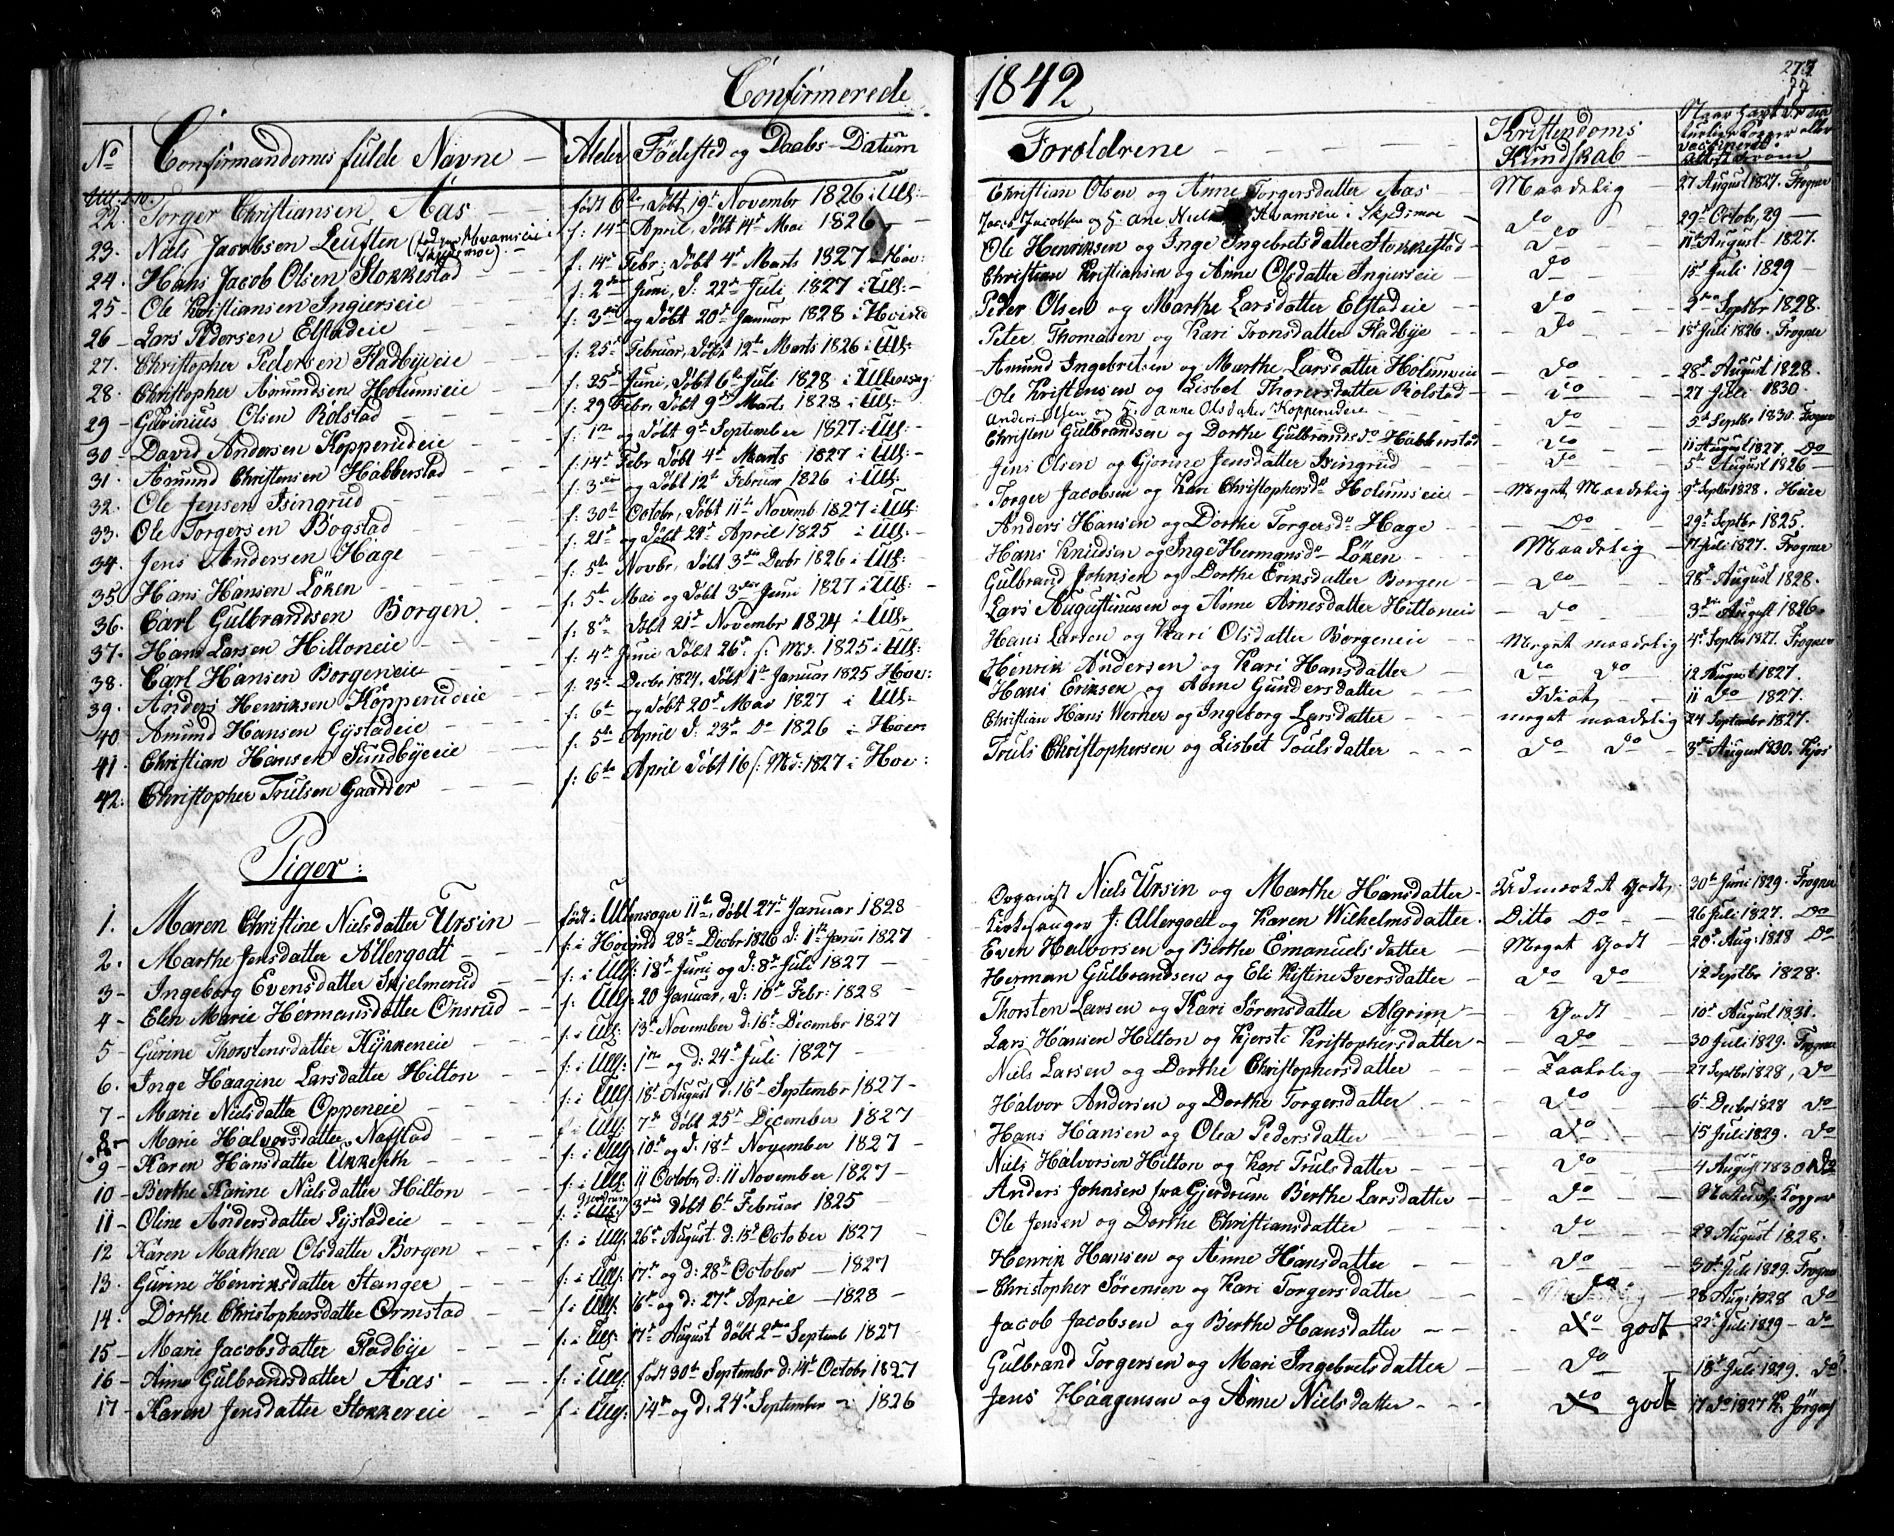 Confirmerede 1842
273
No Confirmandernes fulde Navne Alder Fødested og Daabs-Datum Foroldrene Kristendoms Kundskab
22. Torger Christiansen Aas født 6te, døbt 19d Novembr 1826 i Ull: Christian Olsen og Anne Torgersdatter Aas Maadelig 27 August 1827. Frogner
23. Niels Jacobsen Leuften f: 14d April, døbt 14d Mai 1826 Jacob Jacobsen og Ane Kvamseie i Skedsmoe do 29d Octob, 29
24. Hans Jacob Olsen Stokkestad f: 14d Febr: døbt 4d Marts 1827 i Hov: Ole Henriksen og Inge Ingebretsdatter Stokkestad do 11te August 1827.
25 Ole Kristiansen Ingierseie f: 2den Juni, d: 22de Juli 1827 i Ull: Christian Kristiansen og Anne Olsdatter Ingierseie do 15d Juli 1829
26 Lars Pedersen Elstadeie f: 3die og døbt 20d Januar 1828 i Hovind Peder Olsen og Marthe Larsdatter Elstadeie do 2den Septbr 1828.
27. Christopher Pedersen Fladbyeeie f: 25d Februar, døbt 12te Marts 1826 i Ull: Peter Thomasen og Kari Tronsdatter Fladbye do 15d Juli 1826. Frogner
28. Christopher Amundsen Holumseie f: 25d Juni, døbt 6te Juli 1828 i Ullensag: Amund Ingebretsen og Marthe Larsdatter Holumseie do 28d August 1828.
29 Gulvinius Olsen Rolstad f: 29 Febr, døbt 9d Marts 1828 i Ull: Ole Kristensen og Lisbet Thorersdatter Rolstad do 27 Juli 1830.
30 David Andersen Kopperudeie f: 1te og døbt 9d September 1827 i Ull: Anders Olsen og Anne Olsdatter Kopperudeie do 5d Septbr 1830. Frogner
31. Amund Christensen Habberstad f: 14d Febr døbt 4d Marts 1827 i Ull: Christen Gulbrandsen og Dorthe Gulbrandsdr Habberstad do 11 August 1827. Do
32. Ole Jensen Isingrud f: 3die og døbt 12te Februar 1826 i Ull: Jens Olsen og Gjorine Jensdatter Isingrud do 5te August 1826
33. Ole Torgersen Bogstad f: 30te Octobr, døbt 11te Novemb 1827 i Ull: Torger Jacobsen og Kari Christophersdr Holumseie Meget Maadelig 9d Septbr 1828. Heier
34. Jens Andersen Hage f: 21d og døbt 24d April 1825 i Ull: Anders Hansen og Dorthe Torgersdr Hage Do 29d Septbr 1825.
35 Hans Hansen Löken f: 5te Novbr, døbt 3die Decbr 1826 i Ull: Hans Knudsen og Inge Hermansdr Löken Maadelig 17 Juli 1827. Frogner
36. Carl Gulbrandsen Borgen f: 5te Mai og døbt 3die Juni 1827 i Ull: Gulbrand Johnsen og Dorthe Eriksdatter Borgen do 28d August 1828.
37. Hans Larsen Hiltoneie f: 8de døbt 21d Novembr 1824 i Ull: Lars Augustinusen og Anne Arnesdatter Hiltoneie do 3die August 1826.
38. Carl Hansen Borgeneie f: 4te Juni døbt 26d s: Md: 1825 i Ull: Hans Larsen og Kari Olsdatter Borgeneie Meget maadelig 4d Septbr 1827. Frogner
39. Anders Henriksen Kopperudeie f: 25d Decbr 1824, døbt 1te Januar 1825 Hov: Henrik Andersen og Kari Hansdatter do do 12 August 1827.
40 Amund Hansen Gystadeie f: 6te og døbt 20d Mai 1827 i Ull: Hans Eriksen og Anne Gundersdatter Idiot 11 do 1827.
41. Christian Hansen Sundbyeeie f: 5te April d: 23d do 1826 i Hoven Christian Hans Werner og Ingeborg Larsdatter meget maadelig 24 Septembr 1827.
42. Christopher Trulsen Gaarder f: 6te April døbt 16 s: Md: 1827 i Hov: Truls Christophersen og Lisbet Toulsdatter do do 3die August 1830. Kjos
Piger:
1. Maren Christine Nielsdatter Ursin født i Ullensager 11te, døbt 27d Januar 1828 Organist Niels Ursin og Marthe Hansdatter Udmærket Godt, 30te Juni 1829. Frogner
2. Marthe Jensdatter Allergodt f: i Hovind 28d Decbr 1826 d: 1te Janu 1827 Kirkesanger J: Allergodt og Karen Wilhelmsdatter Ditto Do 26 Juli 1827. Do
3 Ingeborg Evensdatter Skjelmerud f: i Ull: 18d Juni og d: 8d Juli 1827 Even Halvorsen og Berthe Emanuelsdatter Meget Godt 20d Aug: 1828 Do
4 Elen Marie Hermansdatter Onsrud f: Ull: 20 Januar, d: 10d Febr: 1828 Herman Gulbrandsen og Eli Kistine Iversdatter do do 12 Septbr 1828.
5 Gurine Thorstensdatter Kykkeneie f: i Ull: 13d November d: 16d Decembr 1827 Thorsten Larsen og Kari Sørensdatter Algrim Godt 10d August 1831.
6. Inge Haagine Larsdatter Hilton f: i Ull: 1te og d: 24d Juli 1827 Lars Hansen Hilton og Kjersti Kristophersdatter do 30 Juli 1829. Frogner
7 Marie Nielsdatter Oppeneie f: i Ull: 18d August d: 16d Septembr 1827 Niels Larsen og Dorthe Christophersdatter Taalelig 27 Septbr 1828, do
8 Marie Halvorsdatter Nafstad f i Ull: 7d døbt 25d December 1827 Halvor Andersen og Dorthe Torgersdatter do 6te Decbr 1828 do
9 Karen Hansdatter Ukkesth f: i Ull: 10d og d: 18d November 1827 Hans Hansen og Olea Pedersdatter do 15 Juli 1829. do
10 Berthe Karine Nielsdatter Hilton f: i Ull: 11 Octobr, d: 11 November 1827 Niels Halvorsen Hilton og Kari Trulsdatter do 4 August 1830 do
11 Oline Andersdatter Lystadeie f: i Gjerdrum 3die døbt 6te Februar 1825 Anders Johnsen fra Gjerdrum Berthe Larsdatter do Naturl: Kopper
12 Karen Mathea Olsdatter Borgen f: i Ull: 26d August d: 15d October 1827 Ole Jensen og Dorthe Christiansdatter do 29 August 1828.
13. Gurine Henriksdatter Stanger f: i Ull: 17d og d: 28d October 1827 Henrik Hansen og Anne Hansdatter do 30te Juli 1829. Frogner
14. Dorthe Christophersdatter Ormstad f: i Ull: 16d og d: 27d April 1828 Christopher Sörensen og Kari Torgersdatter do 28 Aug: 1828 do
15 Marie Jacobsdatter Fladbye f: i Ull: 17d August døbt 2den Septemb 1827 Jacob Jacobsen og Berthe Hansdatter do godt 22d Juli 1829 do
16 Anne Gulbrandsdatter Aas f: i Ull: født 30te Septembr d: 14d Octobr 1827 Gulbrand Torgersen og Mari Ingebretsdatter do 18d Juli 1829. do
17 Karen Jensdatter Stokkereie f i Ull: 14d og d: 24d September 1826 Jens Haagensen og Anne Nielsdatter do godt 17 do 1827 K: Jörgens